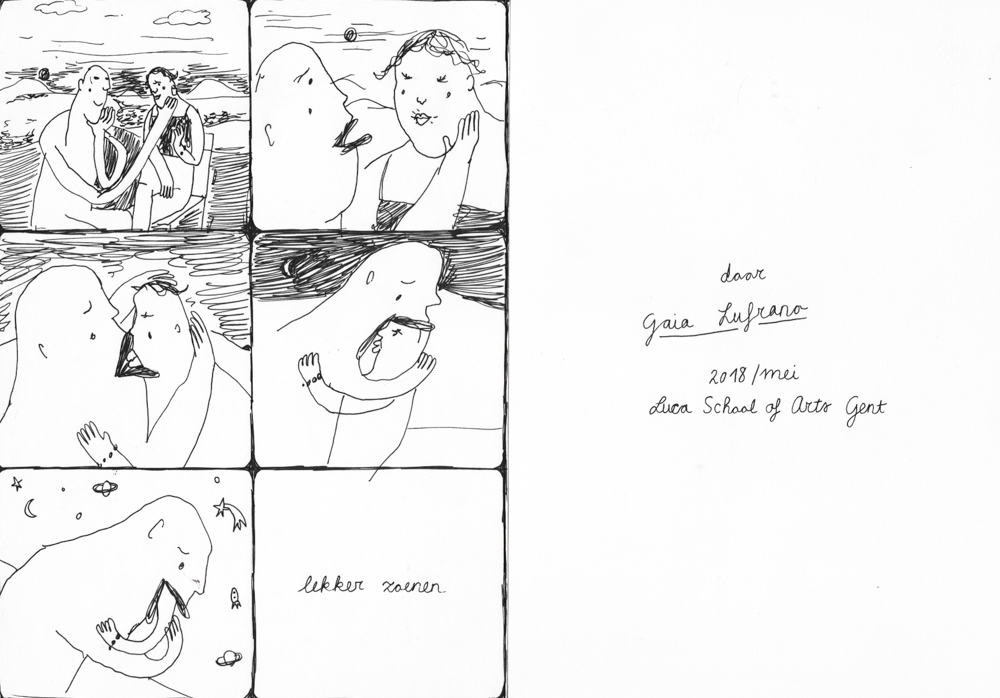 lekker zoenen
door
Gaia Lufrano
2018/mei
Luca School of Arts Gent